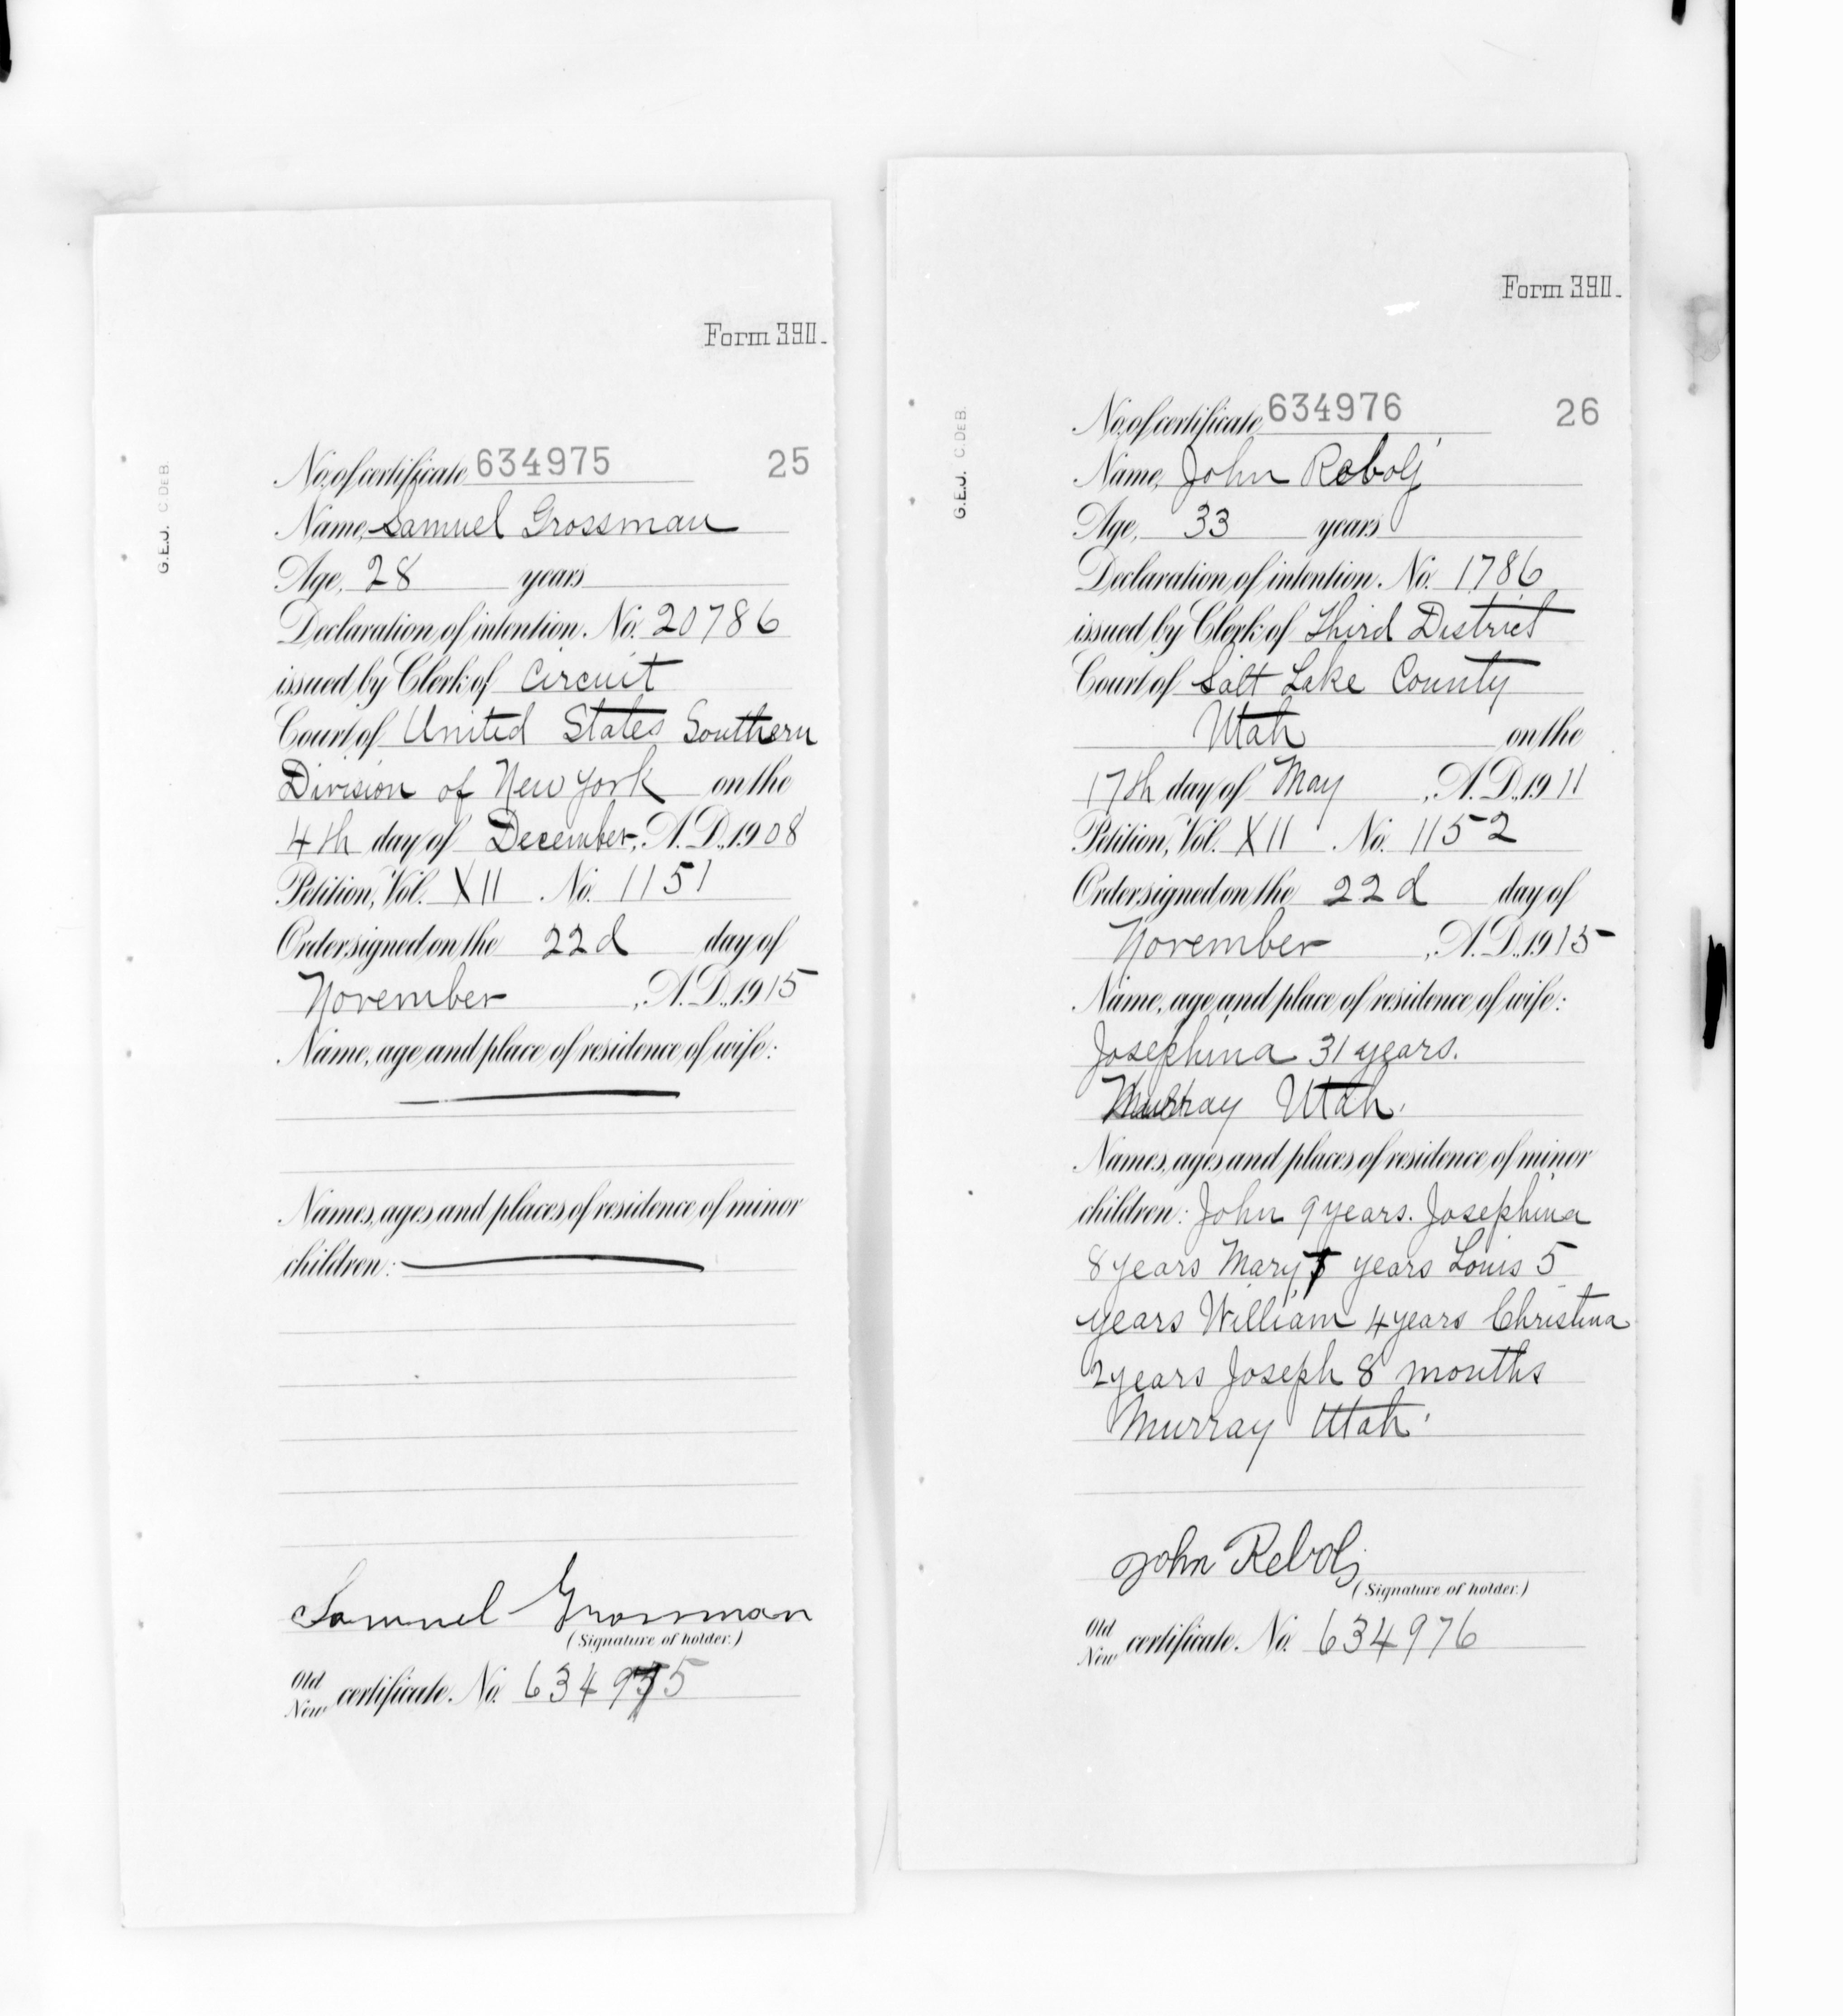 Form 390.
G.E.J. C DEB.
No. of certificate 634975 25
Name, Samuel Grossman
Age, 28 years
Declaration of intention. No. 20786
issued by Clerk of Circuit
Court of United States Southern
Division of New York on the
4th day of December, A.D. 1908
Petition, Vol. XII. No. 1151
Order signed on the 22d day of
November, A.D. 1915
Name, age and place of residence of wife:
Names, ages and places of residence of minor
children:
Samuel Grossman
(Signature of holder.)
Old
New certificate. No. 634975
Form 390.
G.E.J. C.DEB.
No. of certificate 634976 26
Name, John Rebolj
Age, 33 years
Declaration of intention. No. 1786
issued by Clerk of Third District
Court of Salt Lake County
Utah on the
17th day of May, A.D. 1911
Petition, Vol. XII. No. 1152
Order signed on the 22d day of
November, A.D. 1915
Name, age and place of residence of wife:
Josephina 31 years.
Murray Utah.
Names, ages and places of residence of minor
children: John 9 years. Josephina
8 years Mary years Louis 5
years William 4 years Christina
2 years Joseph 8 months
Murray Utah.
John Rebolj
(Signature of holder.)
Old
New certificate. No. 634976